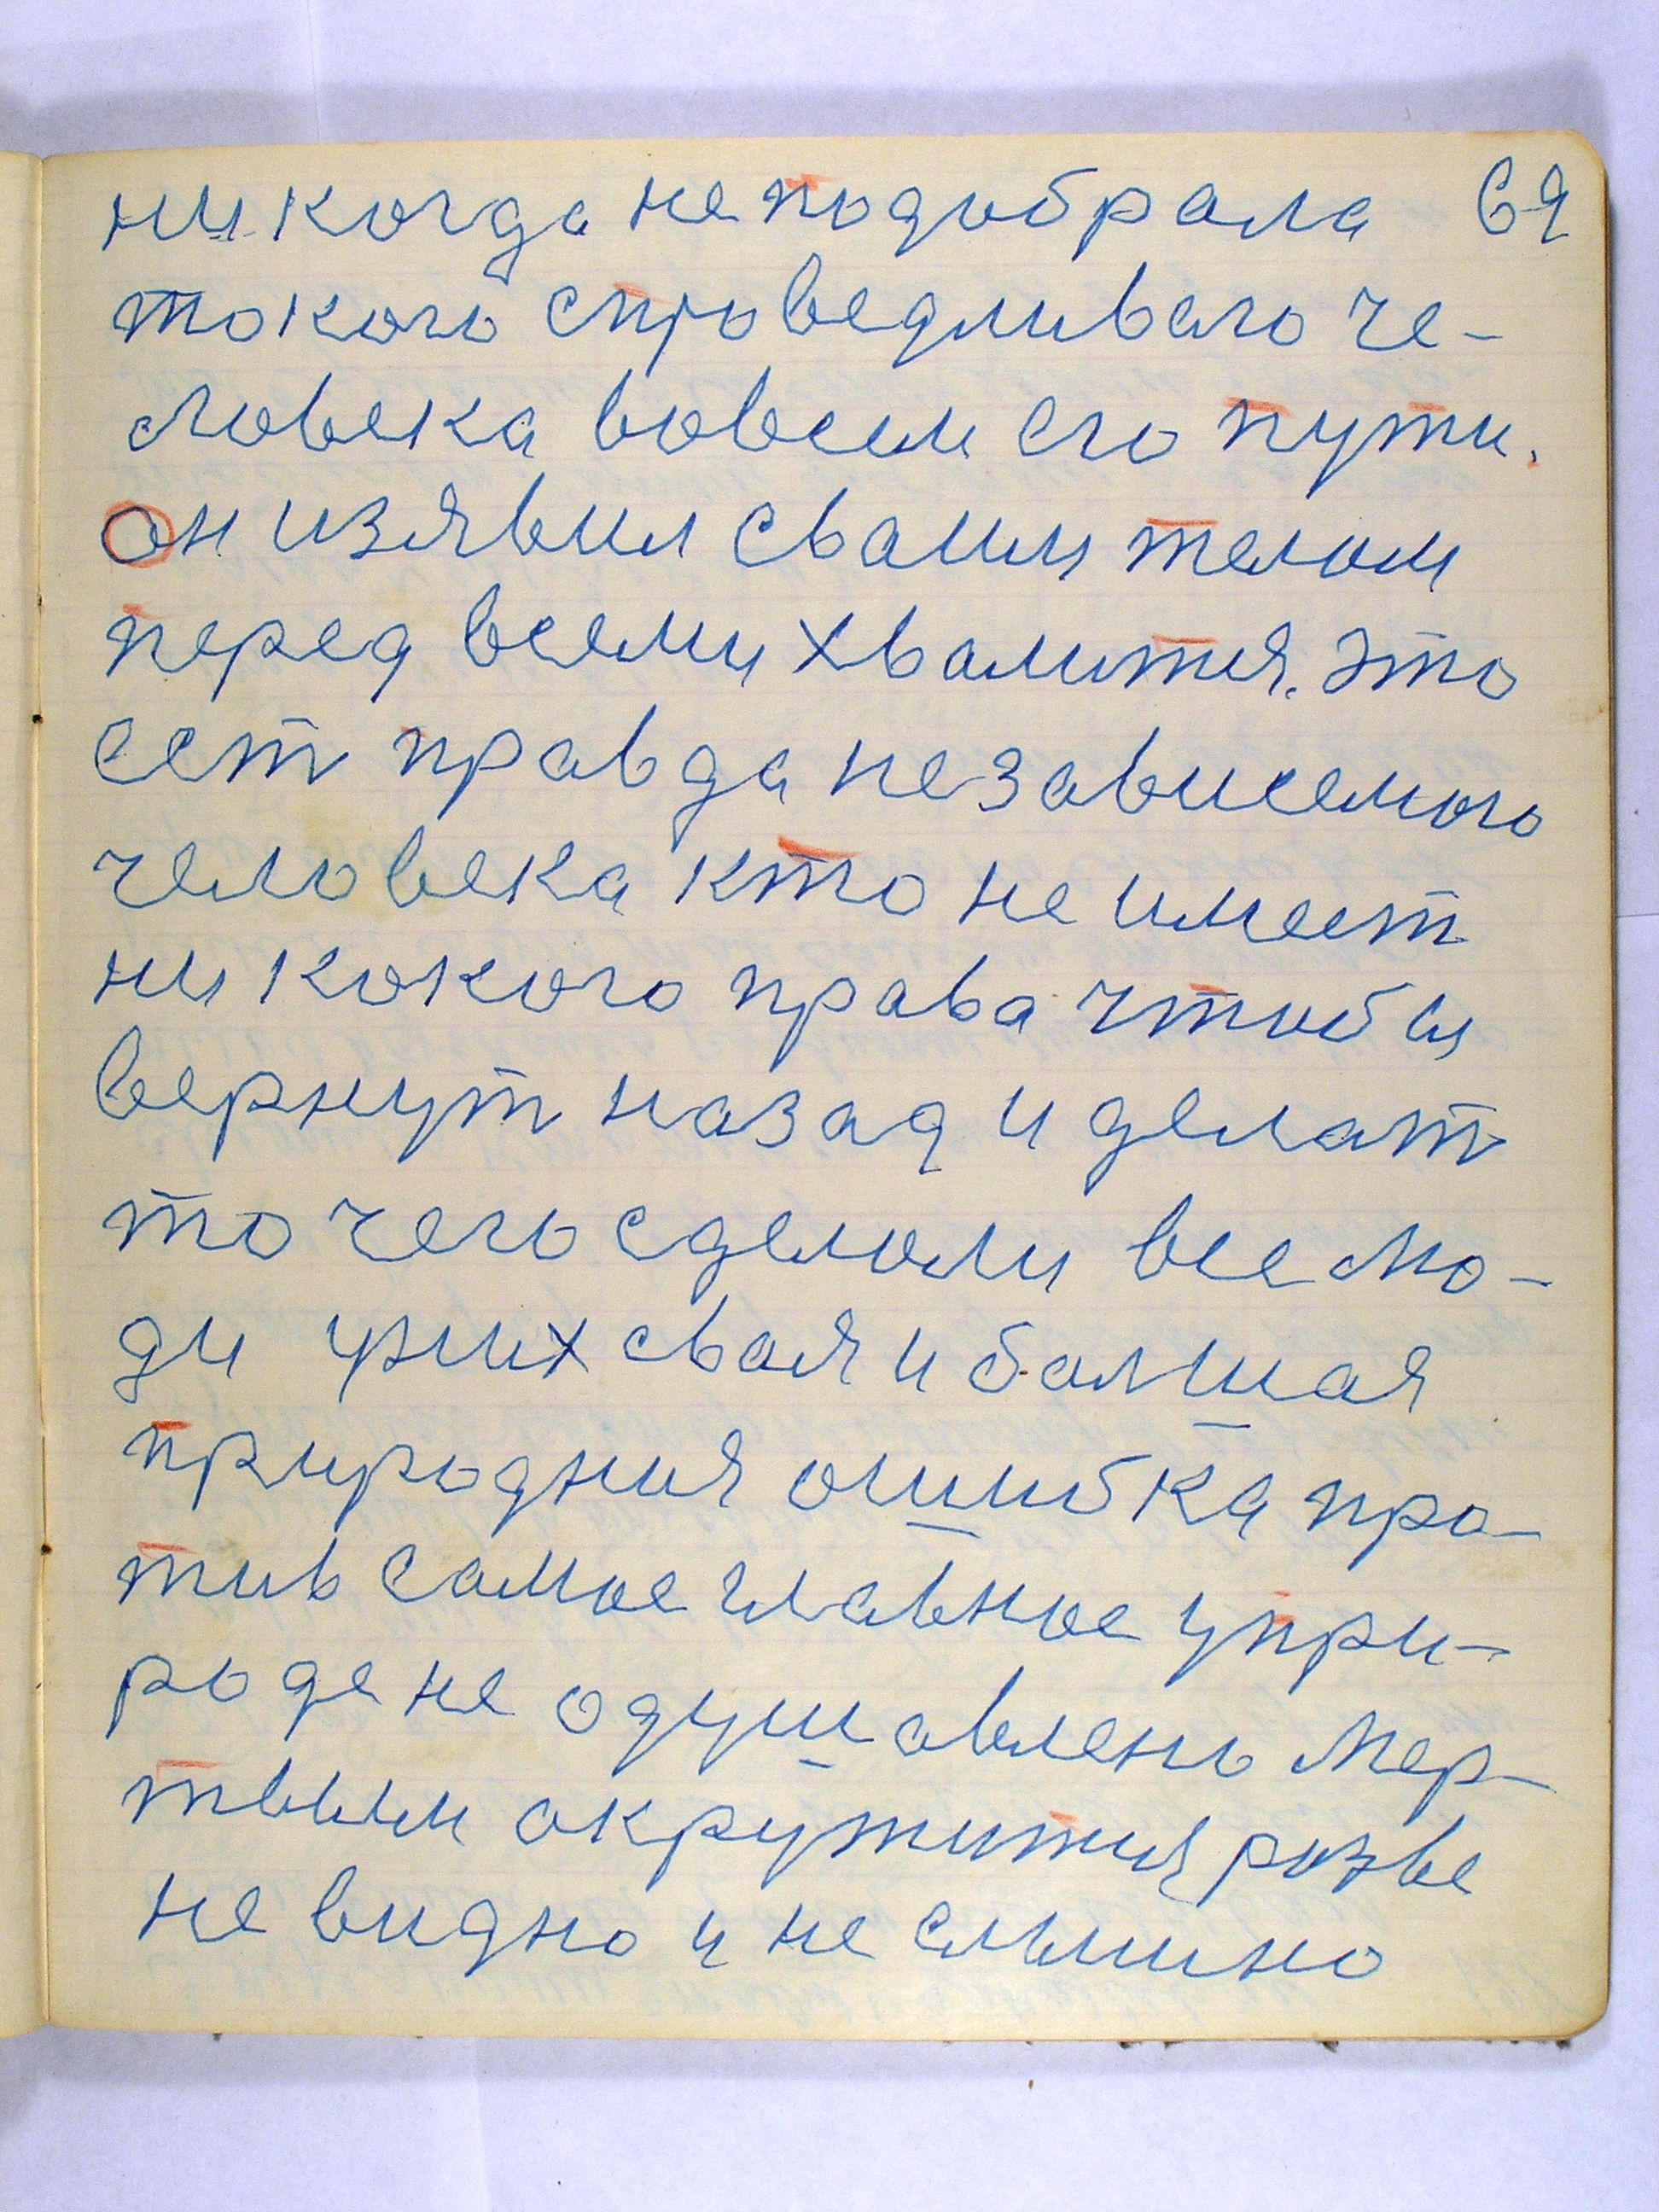 ни когда не подобрала 69
токого спроведливаго че-
ловека вовсем его пути.
он изявил сваим телом
перед всеми хвалится. это
ест правда независемого
человека кто не имеет
ни кокого права чтобы
вернут назад и делат
то чего сделоли все лю-
ди уних свая и балшая
природная ошибка про-
тив самое главное упри-
роде не одушавлено мер-
твым окружится розве
не видно и не слышно